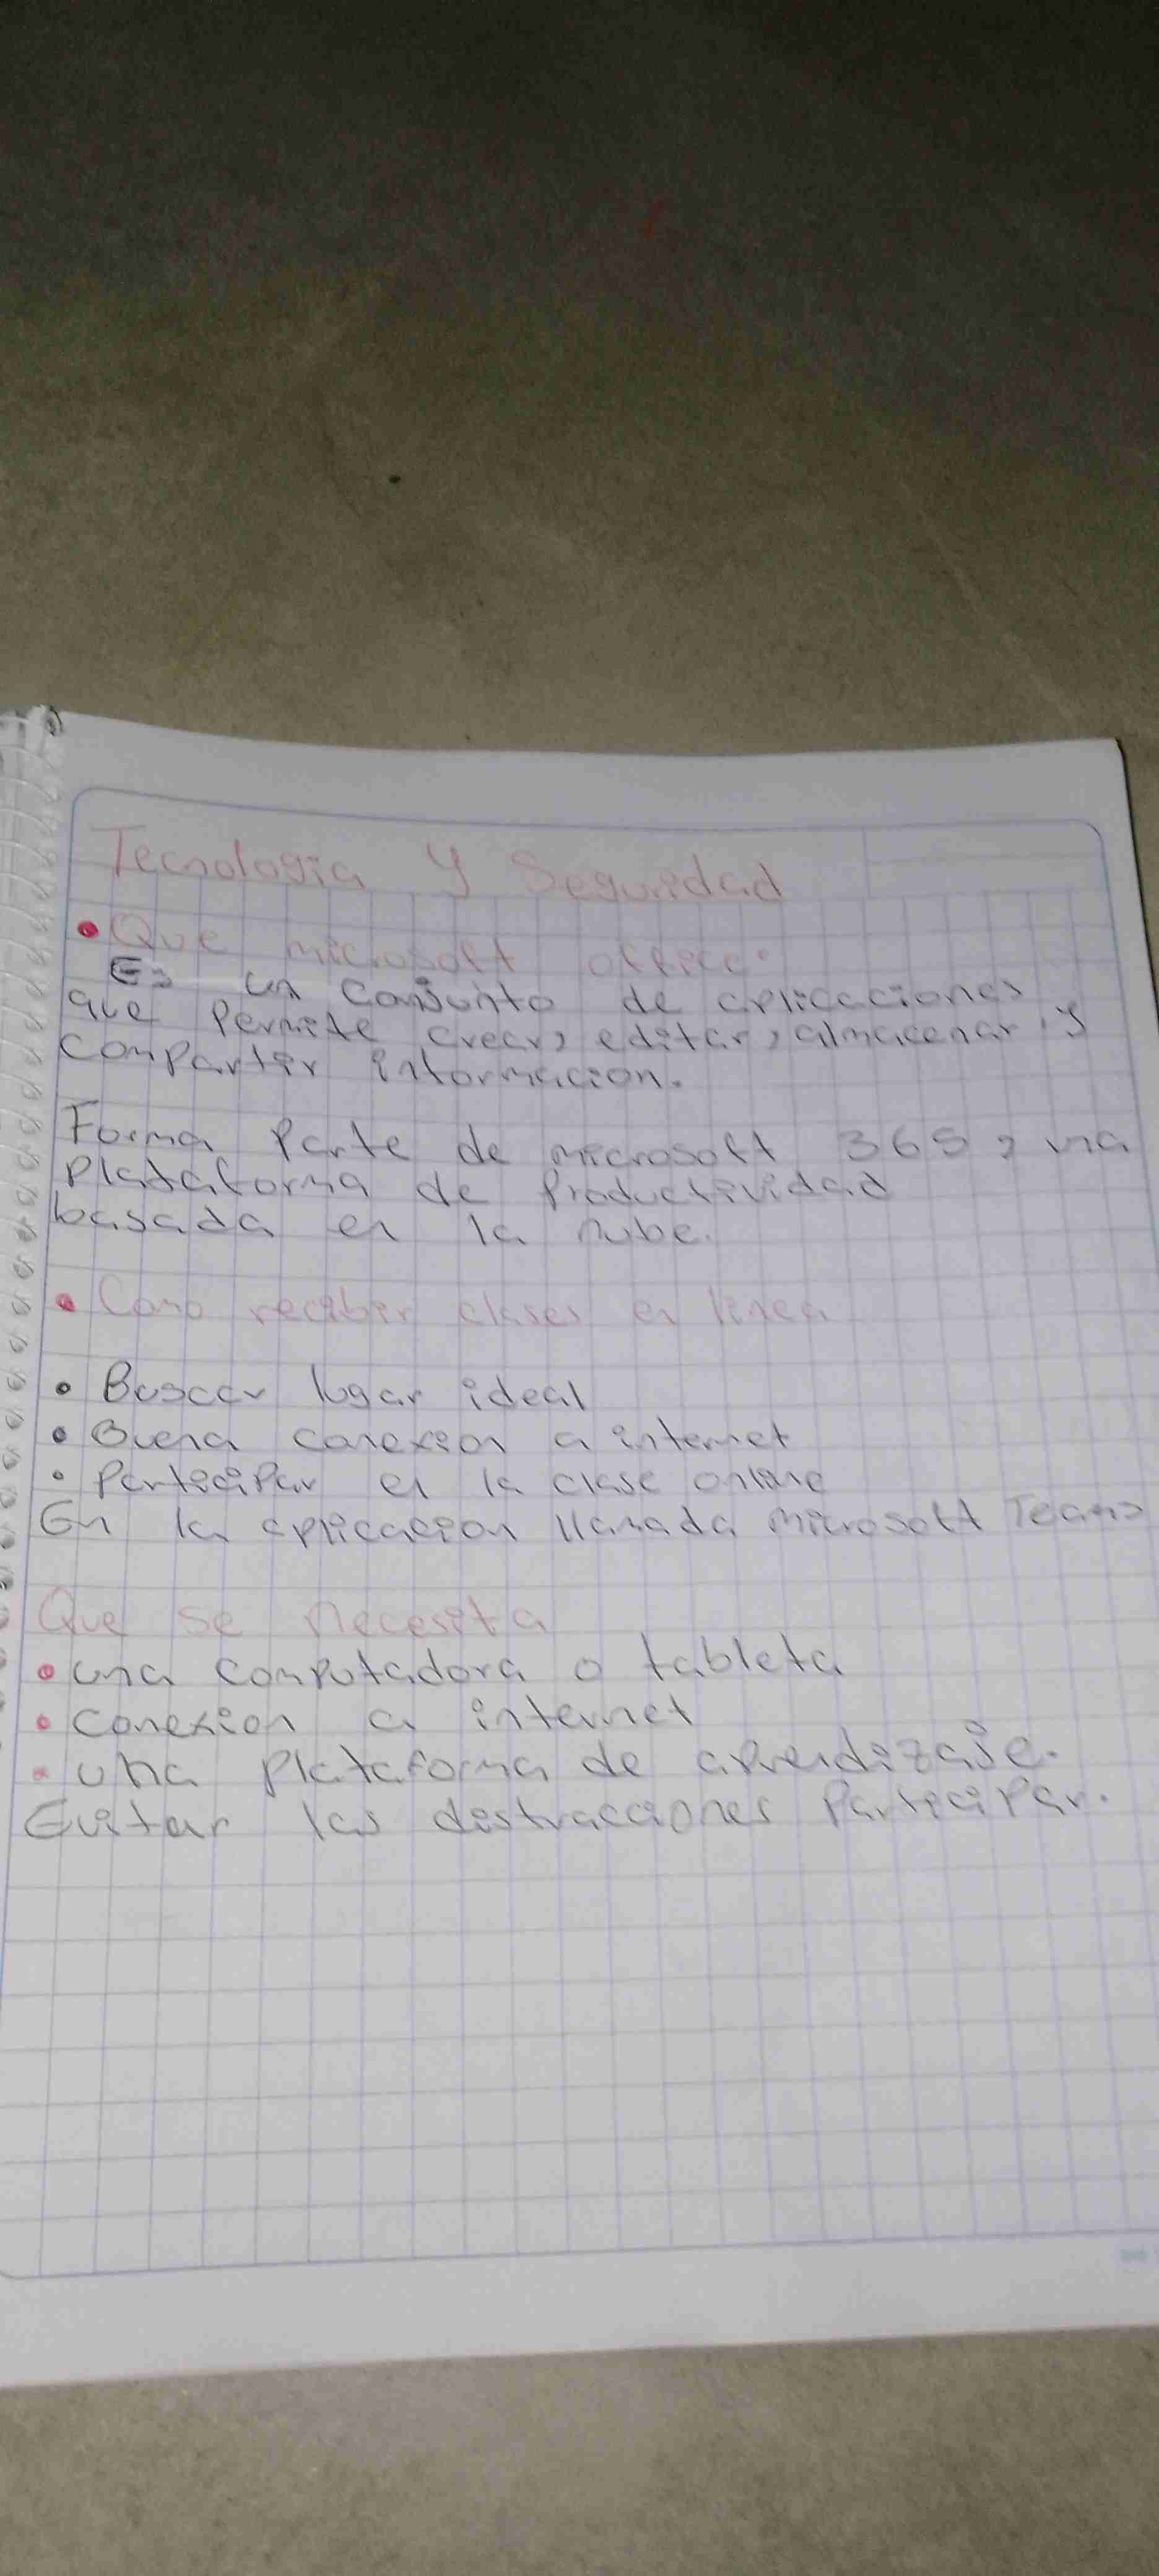 Tecnologia y Seguridad
• Que microsoft office.
Es un conjunto de aplicaciones
que Permite crear, editar, almacenar, y
compartir informacion.
Forma Parte de microsoft 365, una
Plataforma de Productividad
basada en la nube.
• Como recibir clases en linea
• Buscar lugar ideal
• Buena conexion a internet
• Participar en la clase online
En la aplicacion llamada microsoft Teams
Que se necesita
• una computadora o tableta
• conexion a internet
• una Plataforma de aprendizaje.
Evitar las distracciones Participar.